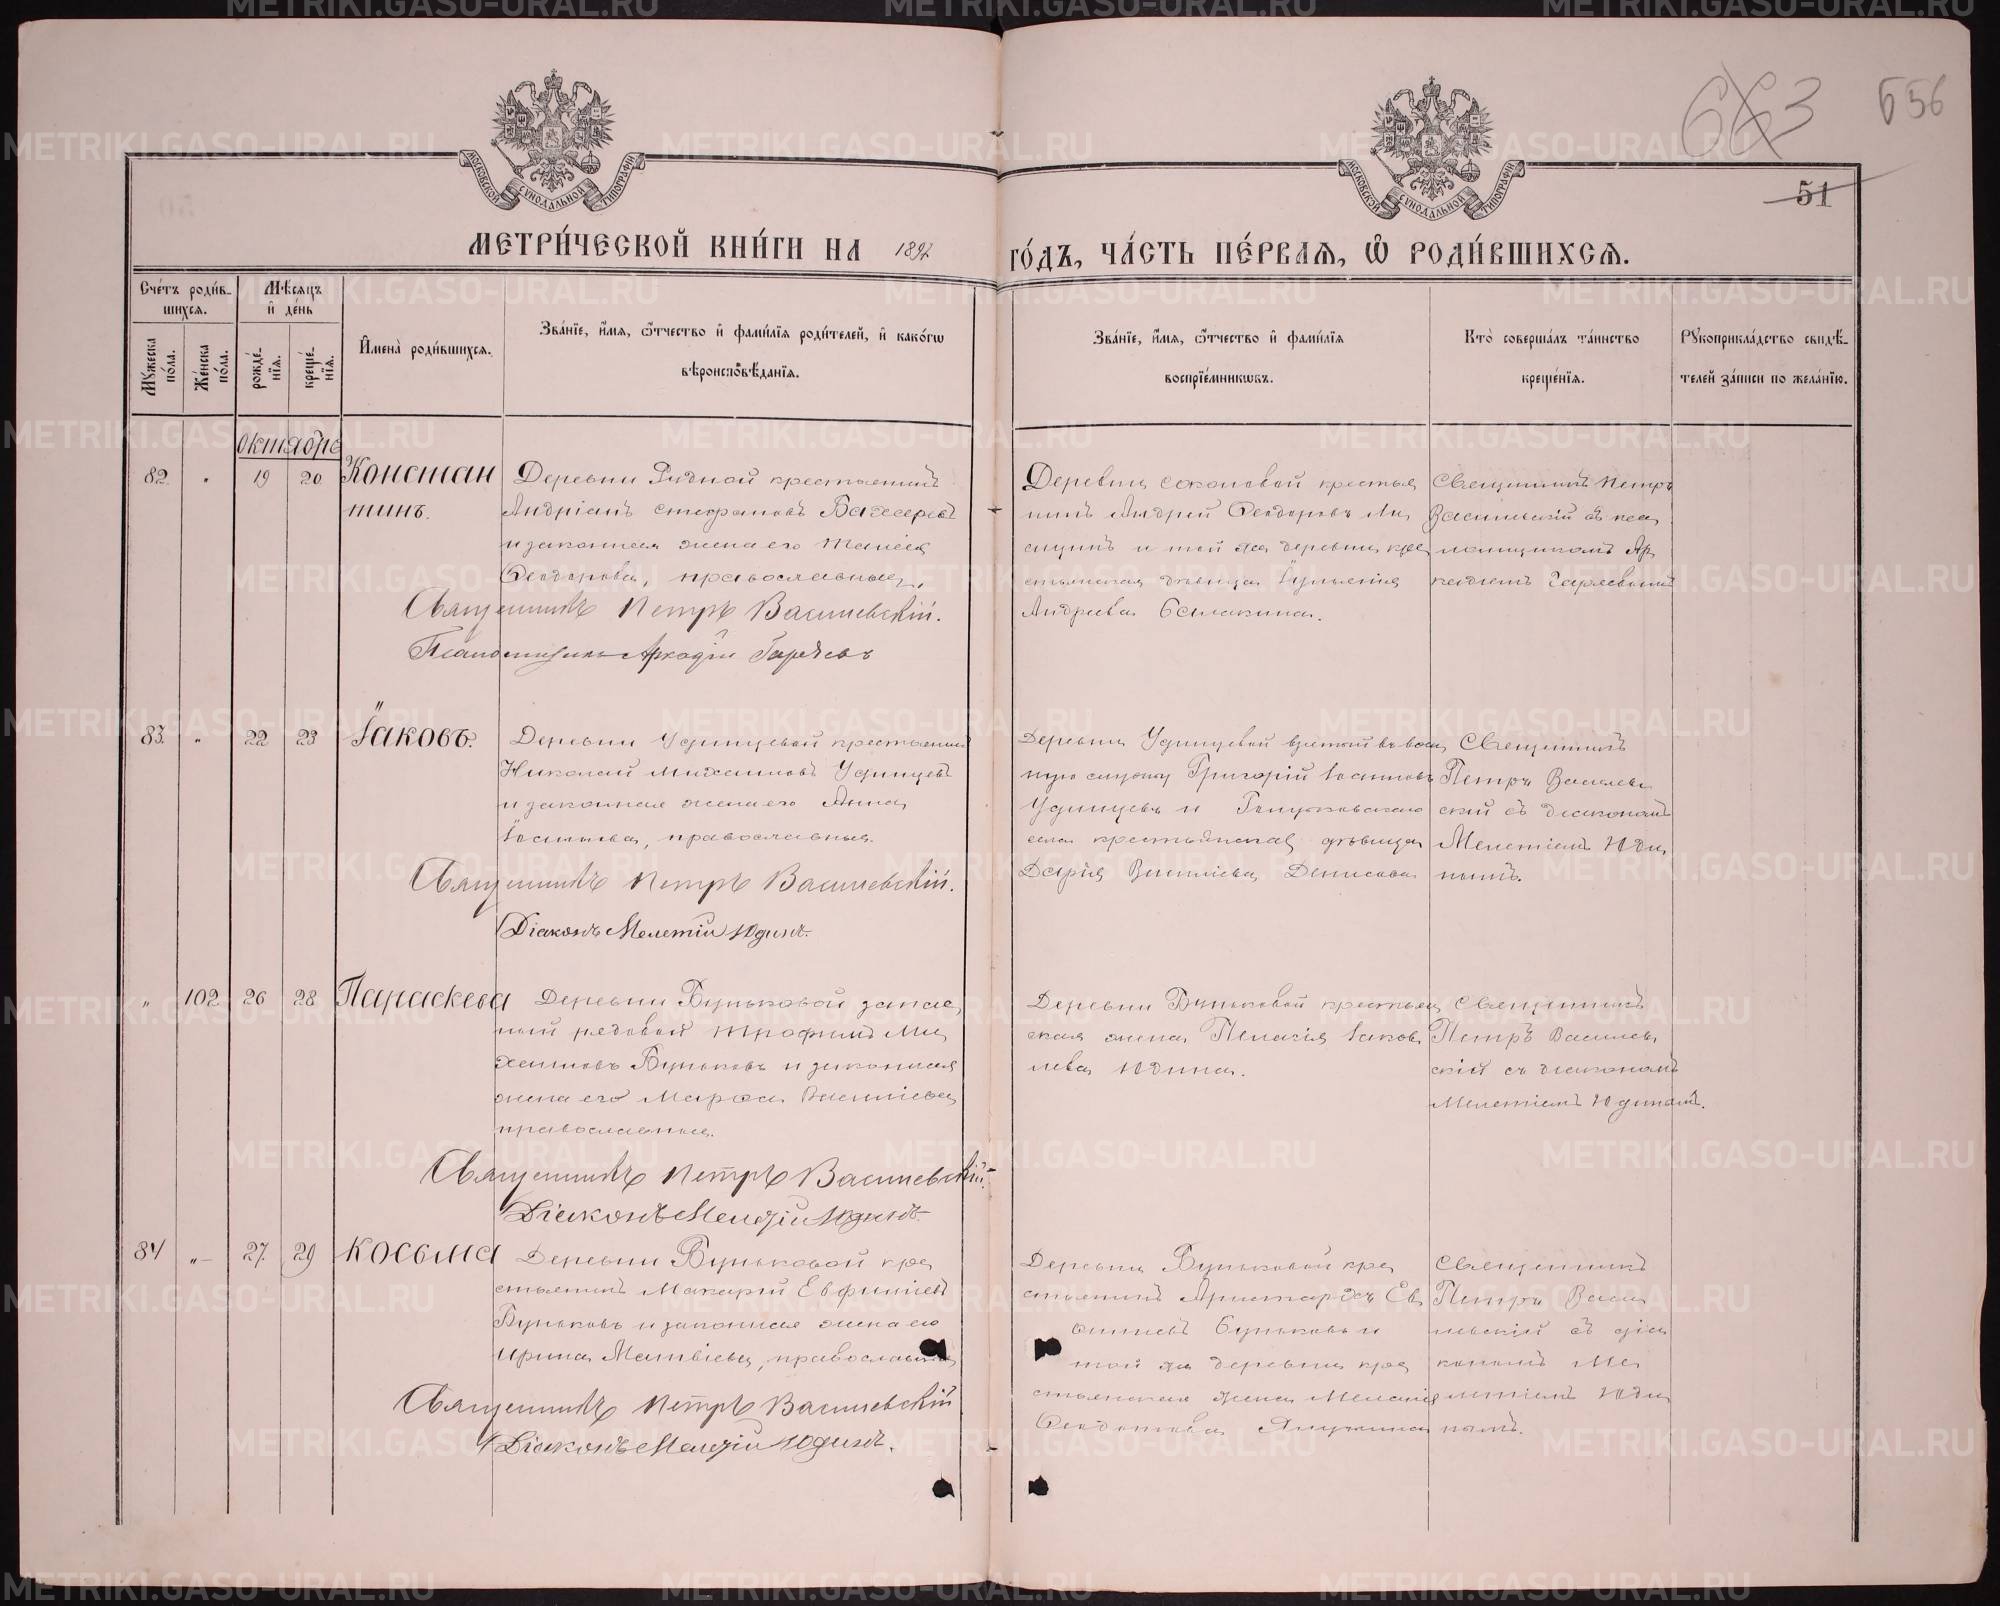 663
656
51
МОСКОВСКОЙ СѴНОДАЛЬНОЙ ТИПОГРАФІИ
МОСКОВСКОЙ СѴНОДАЛЬНОЙ ТИПОГРАФІИ
МЕТРИ́ЧЕСКОЙ КНИ́ГИ НА 1897 ГО́ДЪ, ЧА́СТЬ ПЕ́РВАЯ, Ѡ РОДИ́ВШИХСЯ.
Сче́тъ роди́в-
шихся.
Му́жеска по́ла.
Же́нска по́ла.
Мѣ́сяцъ и де́нь
рожде́-
нїя.
креще́-
нїя.
Имена̀ роди́вшихся.
Зва́нїе, и́мя, ѻ́тчество и фами́лїя роди́телей, и како́гѡ
вѣроисповѣ́данїя.
Зва́нїе, и́мя, ѻ́тчество и фами́лїя
воспрїе́мникѡвъ.
Кто̀ соверша́лъ та́инство
креще́нїя.
Рукоприкла́дство свидѣ́-
телей за́писи по жела́нїю.
Октябрь
82. " 19 20 Констан
тинъ.
Деревни Рудной крестьянинъ
Андріанъ Стефановъ
и законная жена его
Ѳеодорова, православные.
Священникъ Петръ Василевскій.
Псаломщикъ Аркадій Гаряевъ
Деревни Соколовой крестья
нинъ Андрей Ѳеодоровъ
и той же деревни кре
стьянская дѣвица
Андреева
Священникъ Петръ
Василевскій съ пса
ломщикомъ Ар
кадіемъ Гаряевымъ
83. " 22 23 Іаковъ.
Деревни Удинцевой крестьянинъ
Николай Михаиловъ Удинцевъ
и законная жена его Анна
Іоаннова, православные.
Священникъ Петръ Василевскій.
Діаконъ Мелетій Юдинъ.
Деревни Удинцевой взятый въ воен
ную службу Григорій Іоанновъ
Удинцевъ и
села крестьянская дѣвица
Дарія Василіева Денисова
Священникъ
Петръ Василев
скій съ діакономъ
Мелетіемъ Юди
нымъ.
" 102 26 28 Параскева
Деревни Буньковой запас
ный рядовой Трофимъ Ми
хаиловъ Буньковъ и законная
жена его Марѳа Василіева
православные.
Священникъ Петръ Василевскій.
Діаконъ Мелетій Юдинъ.
Деревни Буньковой крестьян
ская жена Пелагія Іаков
лева Юдина.
Священникъ
Петръ Василев
скій съ діакономъ
Мелетіемъ Юдинымъ.
84 " 27. 29 Косьма
Деревни Буньковой кре
стьянинъ Макарій Евфиміевъ
Буньковъ и законная жена его
Ирина Матвіева, православные
Священникъ Петръ Василевскій
Діаконъ Мелетій Юдинъ.
Деревни Буньковой кре
стьянинъ Аристархъ Ев
фиміевъ Буньковъ и
той же деревни кре
стьянская жена Меланія
Ѳеодотова
Священникъ
Петръ Васи
левскій съ діа
кономъ Ме
летіемъ Юди
нымъ.
METRIKI.GASO-URAL.RU